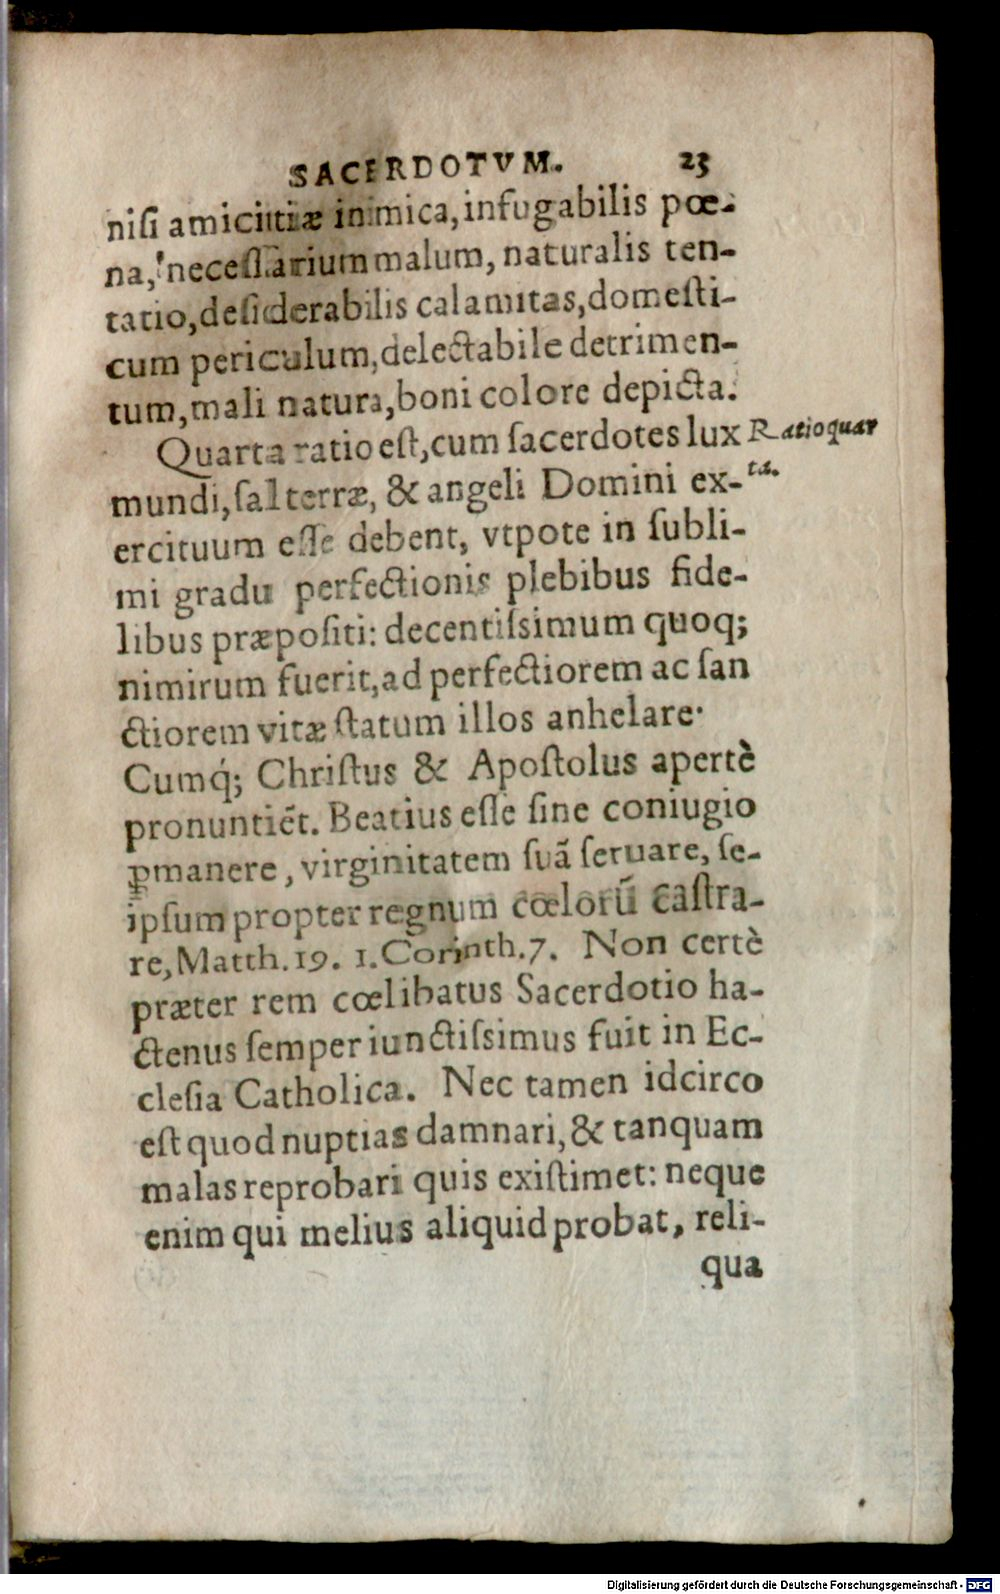 SACERDOTVM. 23
niſi amicitiæ inimica, infugabilis pœ-
na, neceſſarium malum, naturalis ten-
tatio, deſiderabilis calamitas, domeſti-
cum periculum, delectabile detrimen-
tum, mali natura, boni colore depicta.
Quarta ratio eſt, cum ſacerdotes lux
Ratio quar
ta.
mundi, ſal terræ, & angeli Domini ex-
ercituum eſſe debent, vtpote in ſubli-
mi gradu perfectionis plebibus fide-
libus præpoſiti: decentiſsimum quoq;
nimirum fuerit, ad perfectiorem ac ſan
ctiorem vitæ ſtatum illos anhelare.
Cumq́; Chriſtus & Apoſtolus apertè
pronuntiẽt. Beatius eſſe ſine coniugio
ꝑmanere, virginitatem ſuã ſeruare, ſe-
ipſum propter regnum cœlorũ caſtra-
re, Matth. 19. 1. Corinth. 7. Non certè
præter rem cœlibatus Sacerdotio ha-
ctenus ſemper iunctiſsimus fuit in Ec-
cleſia Catholica. Nec tamen idcirco
eſt quod nuptias damnari, & tanquam
malas reprobari quis exiſtimet: neque
enim qui melius aliquid probat, reli-
qua
Digitalisierung gefördert durch die Deutsche Forschungsgemeinschaft - DFG